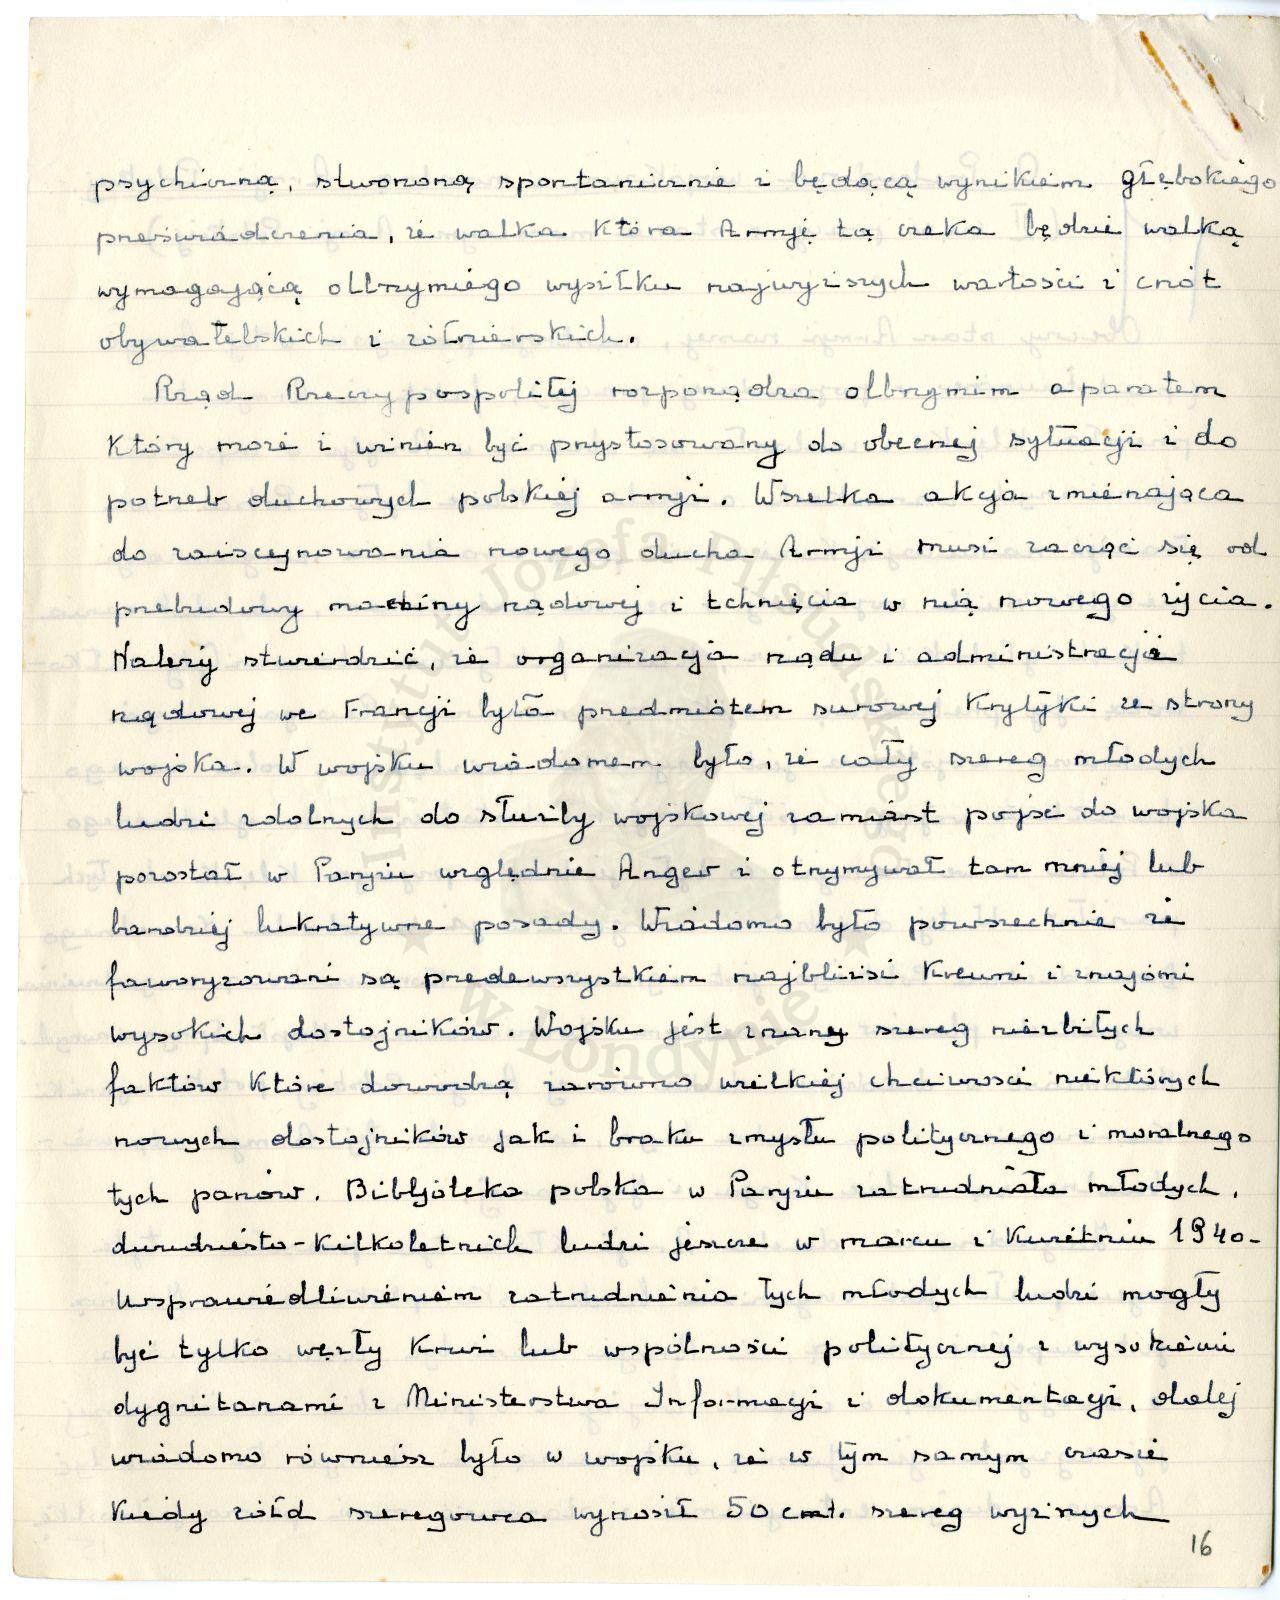 psychiczną, stworzoną spontanicznie i będącą wynikiem głębokiego
przeświadczenia, że walka która Armję tą czeka będzie walką
wymagającą olbrzymiego wysiłku najwyższych wartości i cnót
obywatelskich i żołnierskich.
Rząd Rzeczypospolitej rozporządza olbrzymim aparatem
który może i winien być przystosowany do obecnej sytuacji i do
potrzeb duchowych polskiej armji. Wszelka akcja zmierzająca
do zaiscejnowania nowego ducha Armji musi zacząć się od
przebudowy maszyny rządowej i tchnięcia w nią nowego życia.
Należy stwierdzić, że organizacja rządu i administracji
rządowej we Francji była przedmiotem surowej krytyki ze strony
wojska. W wojsku wiadomem było, że cały szereg młodych
ludzi zdolnych do służby wojskowej zamiast pójść do wojska
pozostał w Paryżu względnie Anger i otrzymywał tam mniej lub
bardziej lukratywne posady. Wiadomo było powszechnie że
faworyzowani są przedewszystkiem najbliżsi krewni i znajomi
wysokich dostojników. Wojsku jest znany szereg niezbitych
faktów które dowodzą zarówno wielkiej chciwości niektórych
nowych dostojników jak i braku zmysłu politycznego i moralnego
tych panów. Bibljoteka polska w Paryżu zatrudniała młodych,
dwudziesto-kilkoletnich ludzi jeszcze w marcu i kwietniu 1940-
Usprawiedliwieniem zatrudnienia tych młodych ludzi mogły
być tylko węzły krwi lub wspólności politycznej z wysokiemi
dygnitarzami z Ministerstwa Informacji i dokumentacji, dalej
wiadomo równiesz było w wojsku, że w tym samym czasie
kiedy żołd szeregowca wynosił 50 cmt. szereg wyższych
16
Instytut Józefa Piłsudskiego
w Londynie